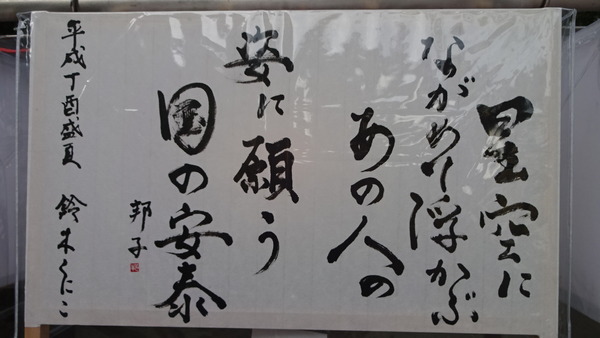 星空に
ながめて浮かぶ
あの人の
姿に願う
国の安泰
邦子
平成丁酉盛夏 鈴木くにこ